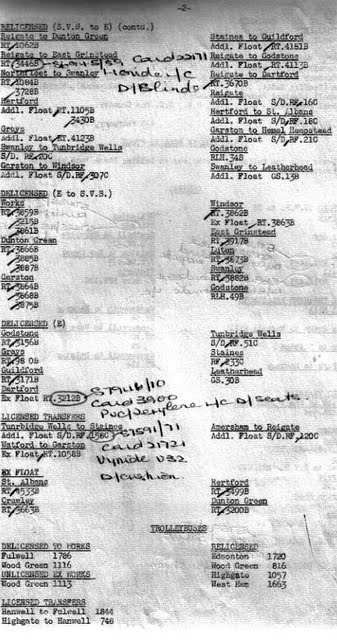 -2-
RELICENSED (S.V.S. to E) (contd.)
Reigate to Dunton Green
RT.4062B
Reigate to East Grinstead
RT.3446B
Northfleet to Swanley
RT.4084B
3728B
Hertford
Addl. Float RT.1105B
3430B
Grays
Addl. Float RT.4123B
Swanley to Tunbridge Wells
S/D. RF.20C
Garston to Windsor
Addl. Float S/D.RF.307C
Staines to Guildford
Addl. Float RT.4181B
Reigate to Godstone
Addl. Float RT.4113B
Reigate to Dartford
RT.3670B
Reigate
Addl. Float S/D.RF.16C
Hertford to St. Albans
Addl. Float S/D.RF.18C
Garston to Hemel Hempstead
Addl. Float S/D.RF.21C
Godstone
RLH.34B
Swanley to Leatherhead
Addl. Float GS.13B
Card 22171
D/Blinds
DELICENSED (E to S.V.S.)
Works
RT.3859B
3215B
3861B
Dunton Green
RT.3866B
3885B
3887B
Garston
RT.3864B
3868B
3875B
Windsor
RT.3862B
Ex Float RT.3863B
East Grinstead
RT.3917B
Luton
RT.3873B
Swanley
RT.3882B
Godstone
RLH.49B
DELICENSED (E)
Godstone
RT.3156B
Grays
RT.3806B
Guildford
RT.3171B
Dartford
Ex Float RT.3212B
Tunbridge Wells
S/D.RF.51C
Staines
RF.233C
Leatherhead
GS.30B
S7946/10
Card 3900
LICENSED TRANSFERS
Tunbridge Wells to Staines
Addl. Float S/D.RF.158C
Watford to Garston
Ex Float RT.1058B
Amersham to Reigate
Addl. Float S/D.RF.120C
S7591/71
Card 21721
Vynide V32
D/Cushion
EX FLOAT
St. Albans
RT.4533B
Crawley
RT.3663B
Hertford
RT.3499B
Dunton Green
RT.3200B
TROLLEYBUSES
DELICENSED TO WORKS
Fulwell 1786
Wood Green 1116
UNLICENSED EX WORKS
Wood Green 1113
RELICENSED
Edmonton 1720
Wood Green 816
Highgate 1057
West Ham 1663
LICENSED TRANSFERS
Hanwell to Fulwell 1844
Highgate to Hanwell 748